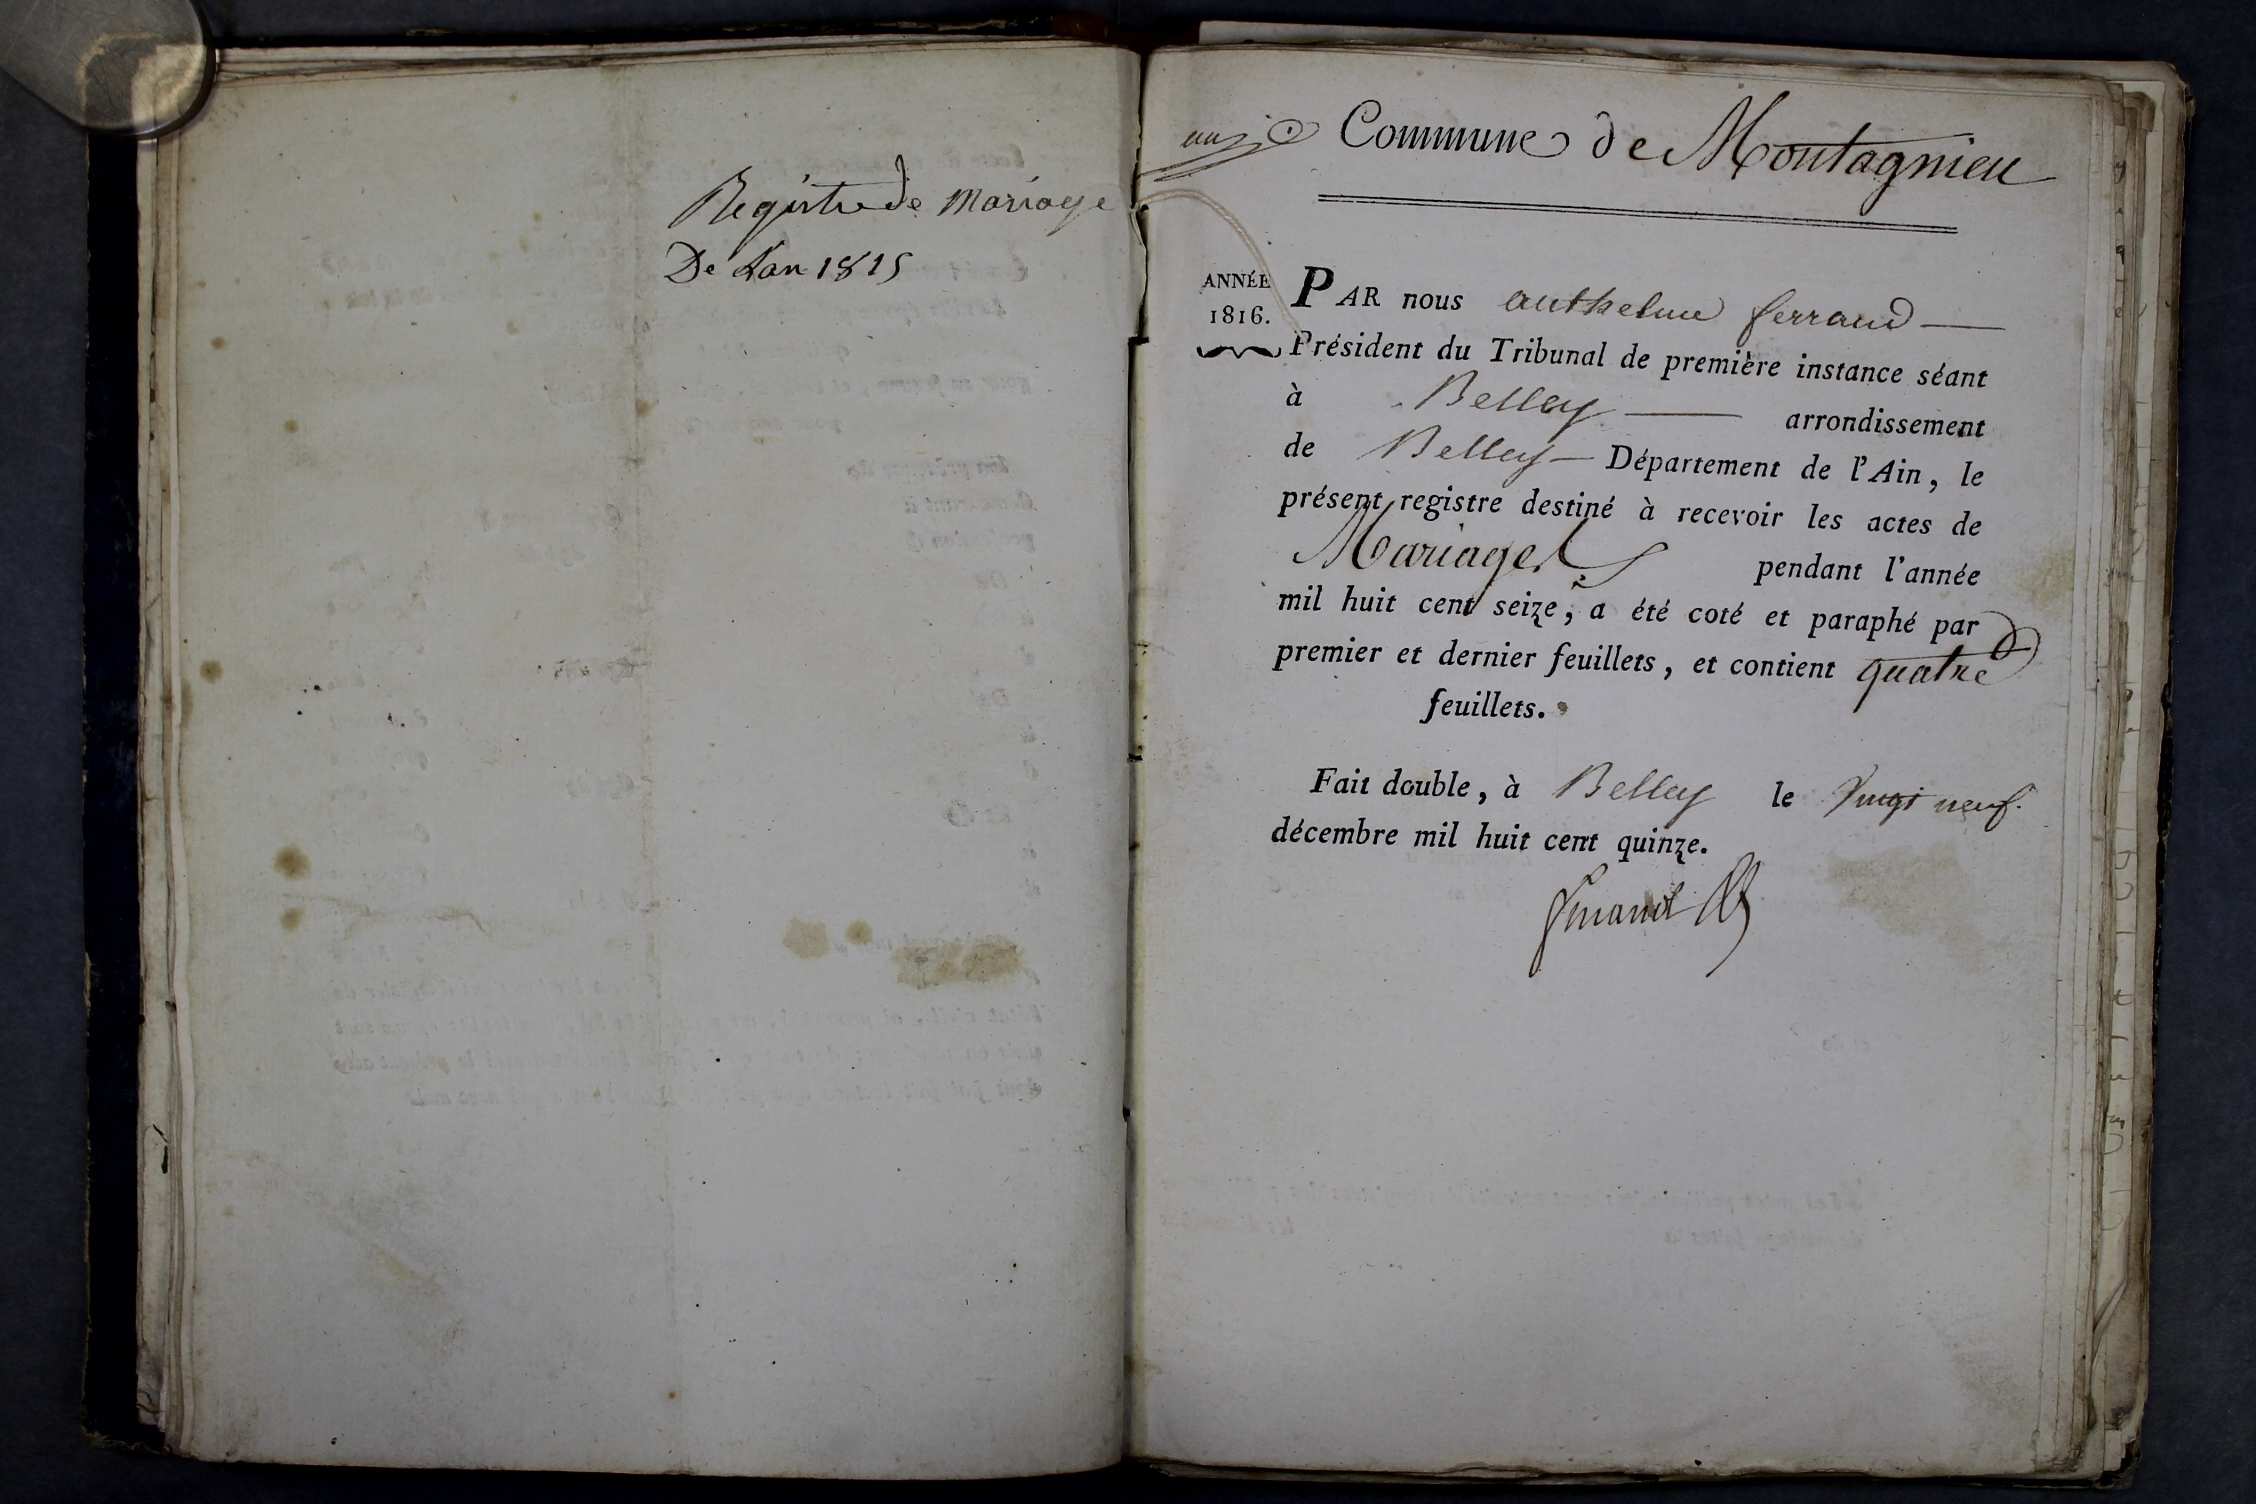 Registre de Mariage
De Lan 1815
Commune de Montagnieu
ANNÉE
1816.
PAR nous anthelme ferrand
Président du Tribunal de première instance séant
à Belley arrondissement
de Belley Département de l'Ain, le
présent registre destiné à recevoir les actes de
Mariages pendant l'année
mil huit cent seize, a été coté et paraphé par
premier et dernier feuillets, et contient quatre
feuillets.
Fait double, à Belley le vingt neuf.
décembre mil huit cent quinze.
ferrand